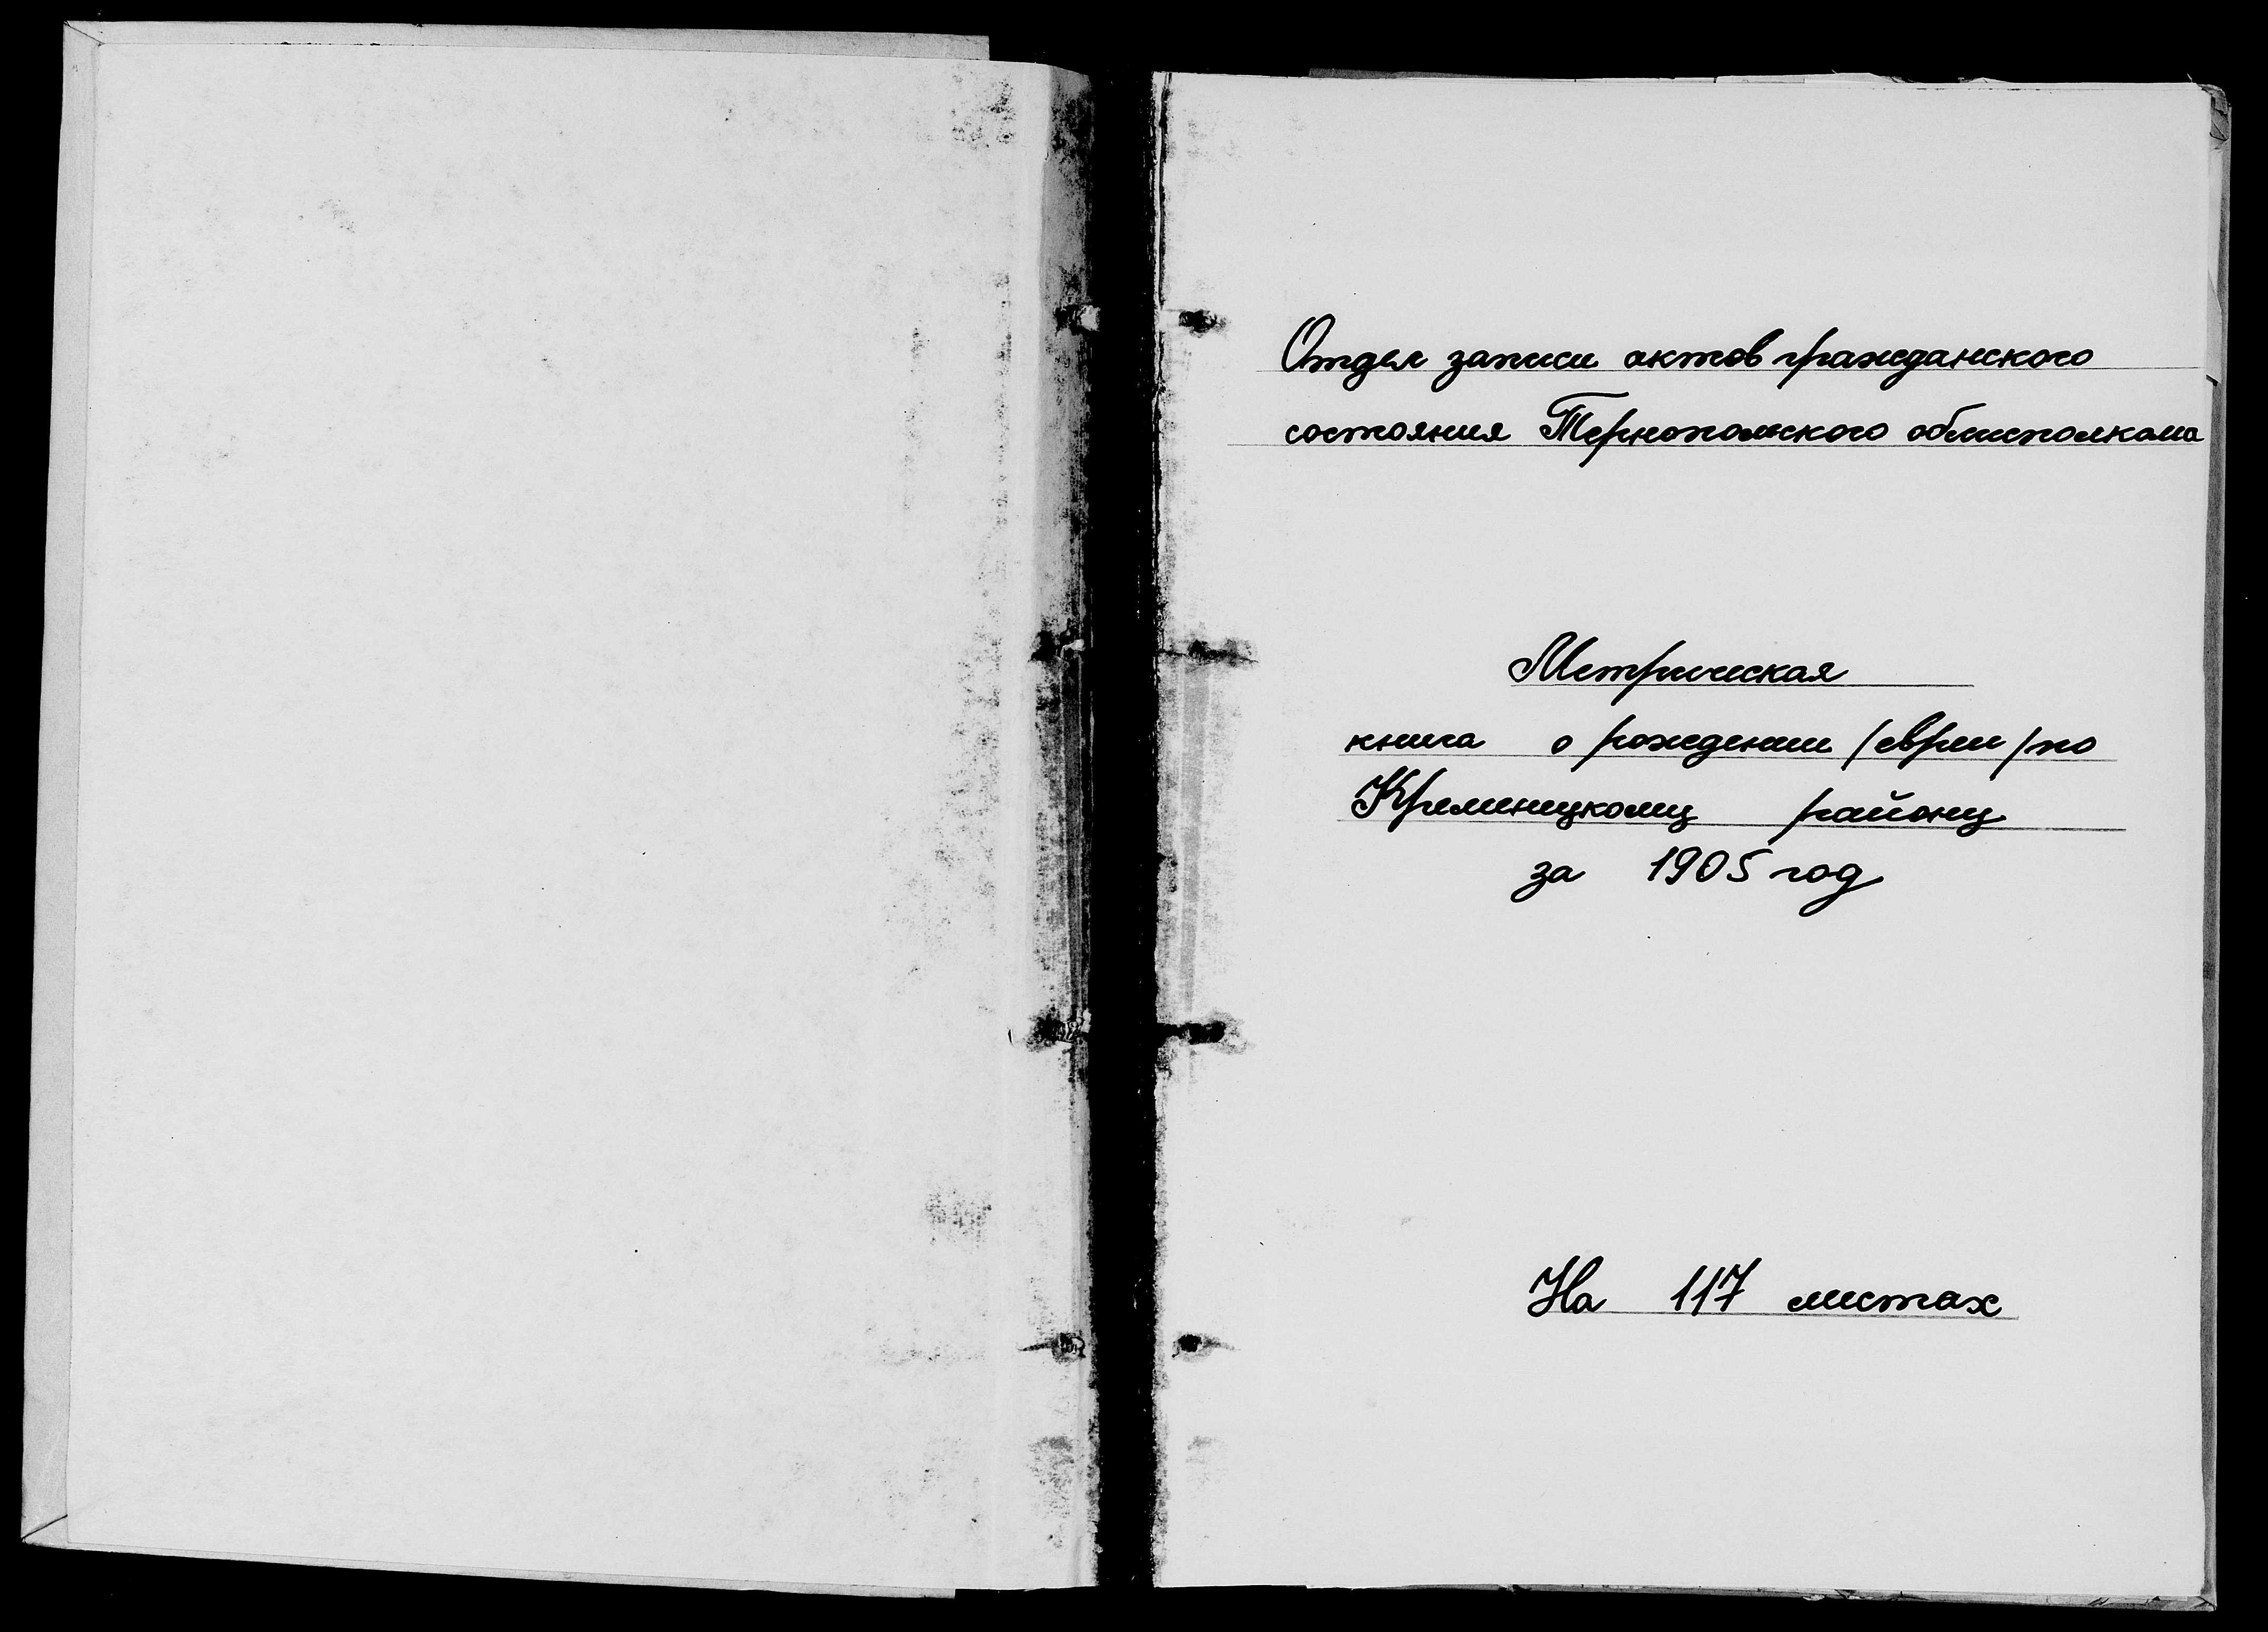 Отдел записи актов гражданского
состояния Тернопольского облисполкома
Метрическая
книга о рождении /евреи/ по
Кременецкому району
за 1905 год
На 117 листах